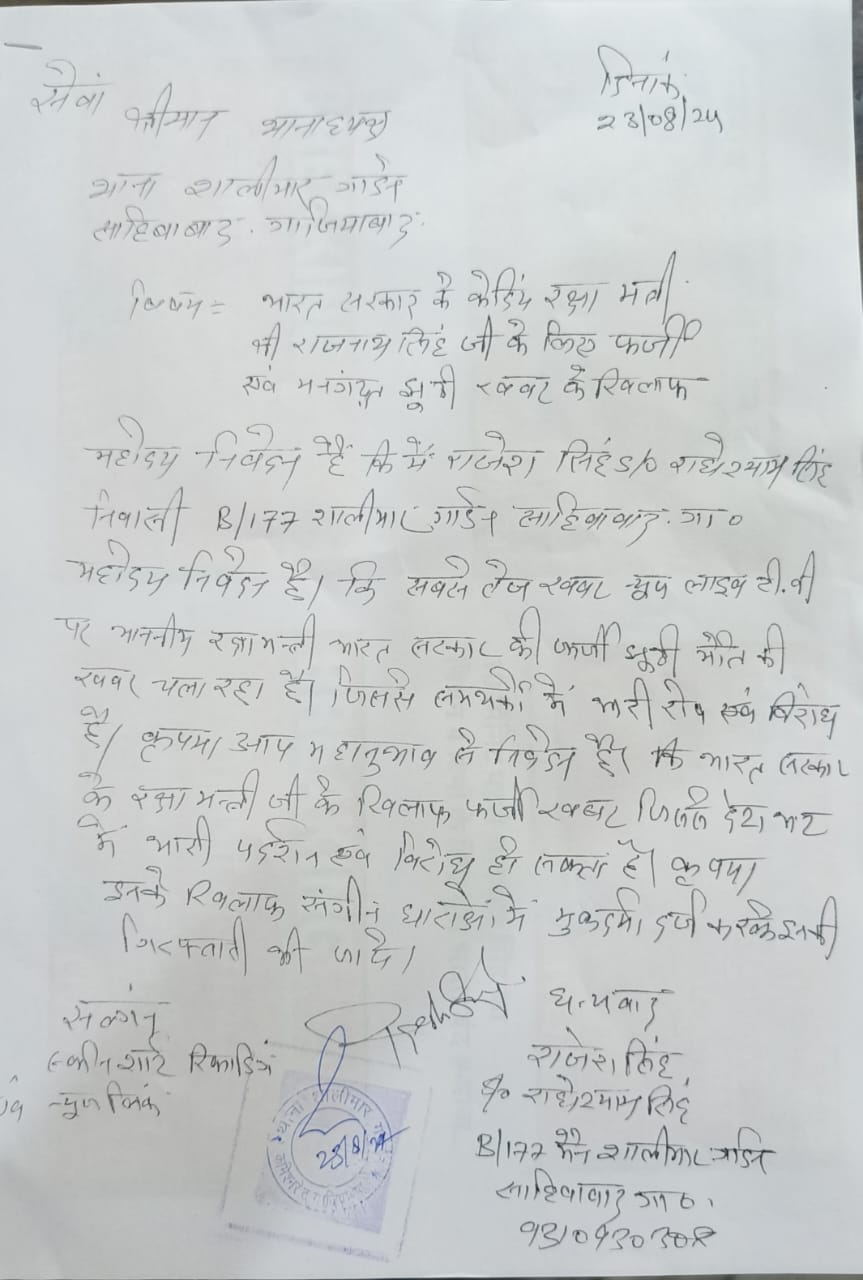 सेवां
दिनांक
23/08/24
श्रीमान थानाध्यक्ष
थाना शालीमार गार्डेन
साहिबाबाद. गाजियाबाद.
विषय = भारत सरकार के केद्रिय रक्षा मंत्री
श्री राजनाथ सिंह जी के लिए फर्जी
एवं मनगंढ़त झूठी खबर के खिलाफ
महोदय निवेदन है कि मैं राजेश सिंह S/o राधेश्याम सिंह
निवासी B/177 शालीमार गार्डेन साहिबाबाद. गा०
महोदय निवेदन है। कि सबसे तेज खबर न्यूज लाइव टी.वी
पर माननीय रक्षा मन्त्री भारत सरकार की फर्जी झूठी मौत की
खबर चला रहा है। जिससे समर्थकों में भारी रोष एवं विरोध
है। कृपया आप महानुभाव से निवेदन है। कि भारत सरकार
के रक्षा मन्त्री जी के खिलाफ फर्जी खबर जिससे देश भर
में भारी पर्दशन एवं विरोध हो सकता है। कृपया
इनके खिलाफ संगीन धाराओं में मुकदमा दर्ज करके इनकी
गिरफ्तारी की जाये।
धन्यवाद
सलंग्न
स्कीन शाट रिकार्डिग
न्यूज लिंक
राजेश सिंह
S/o राधेश्याम सिंह
B/177 मैन शालीमार गार्डेन
साहिबाबाद गा०.
थाना शालीमार
23/8/24